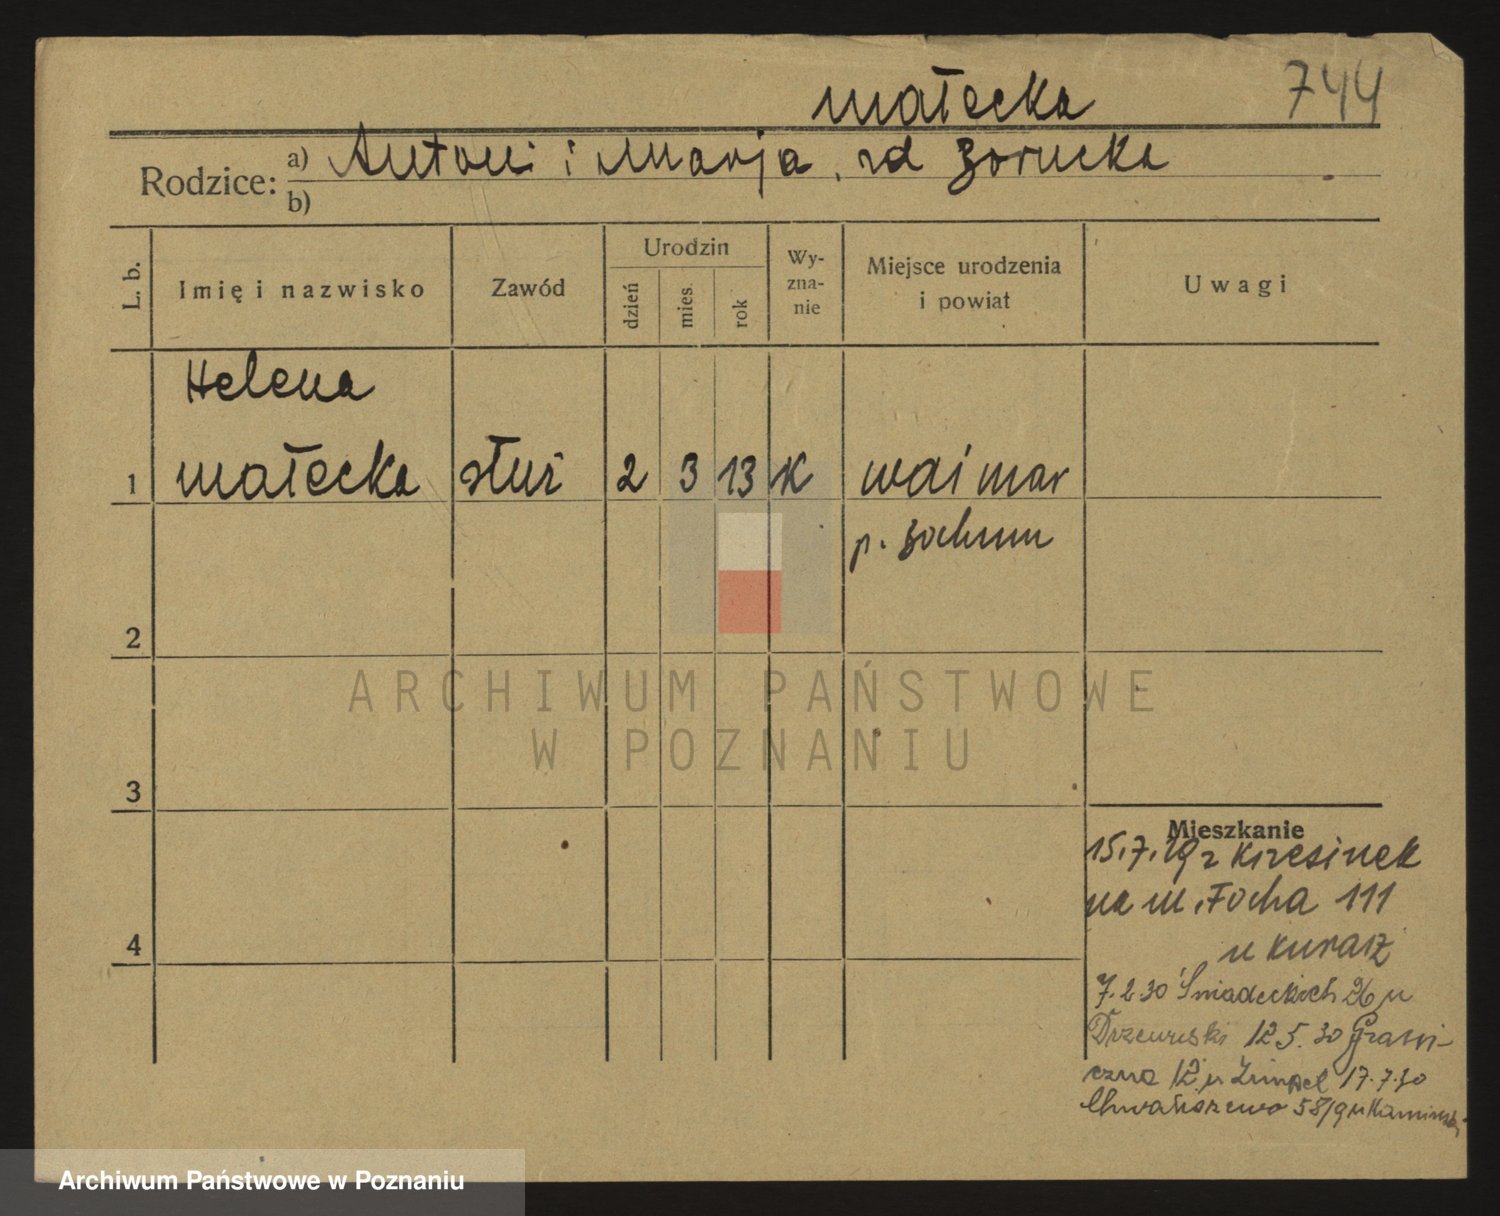 małecka 744
Rodzice: a) Antoni i Marja, zd
b)
L. b. Imię i nazwisko Zawód Urodzin dzień mies. rok Wy-zna-nie Miejsce urodzenia i powiat Uwagi
Helena
1 małecka służ 2 3 13 K waimar
p. Bochum
2
ARCHIWUM PAŃSTWOWE
W POZNANIU
3
Mieszkanie
15.7.29 z Krzesinek
na ul. Focha 111
4
u Kurasz
7.2.30 Śniadeckich 26 u
12.5.30 Grani-
czna 12 u 17.7.30
Chwaliszewo 58/9 u Kamiński
Archiwum Państwowe w Poznaniu